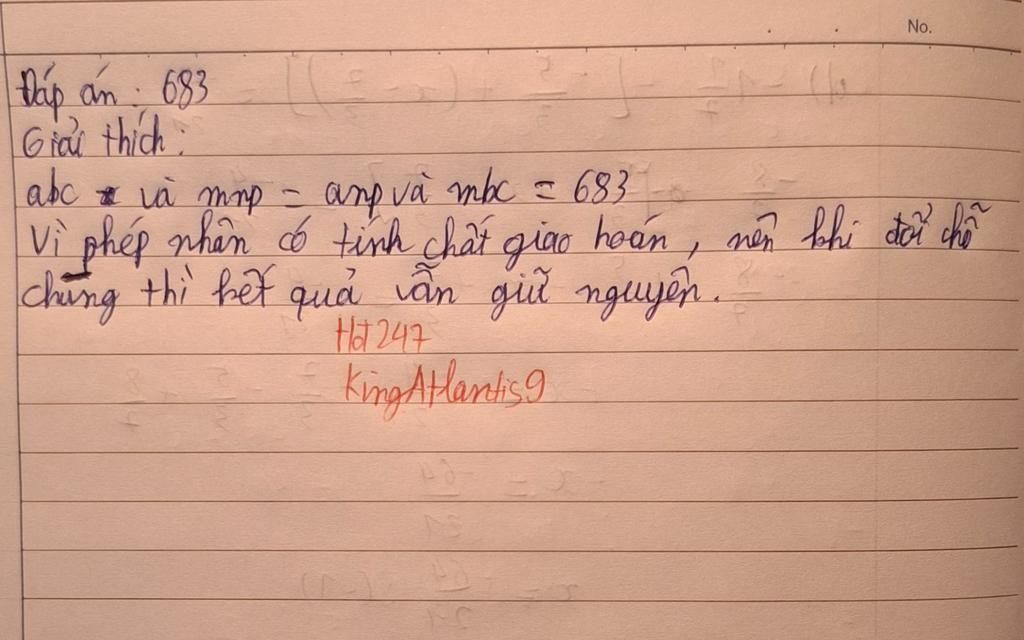 No.
Đáp án : 683
Giải thích :
abc và mnp = anp và mbc = 683
Vì phép nhân có tính chất giao hoán, nên khi đổi chỗ
chúng thì kết quả vẫn giữ nguyên.
Hdt247
KingAtlantis9